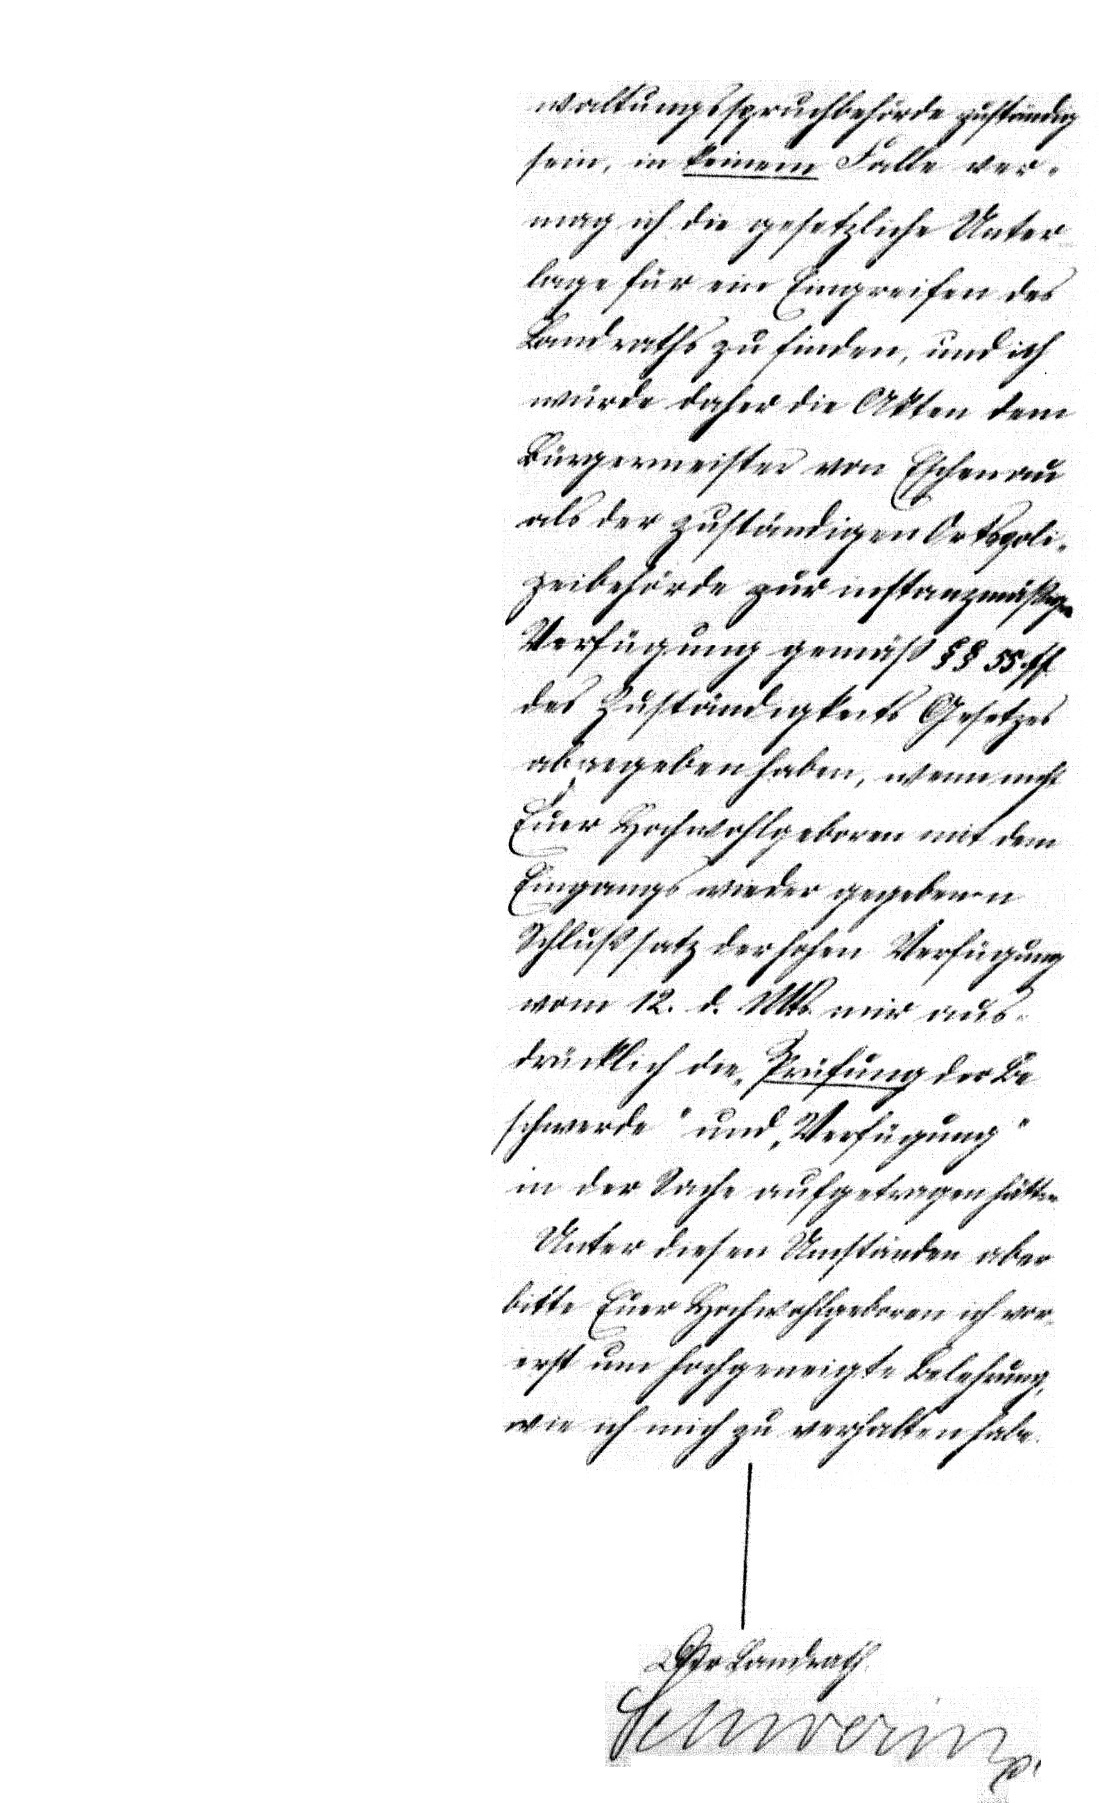 waltungsspruchbehörde zuständig
sein, in keinem Falle ver-
mag ich die gesetzliche Unter
lage für ein Eingreifen des
Landraths zu finden, und ich
würde daher die Akten dem
Bürgermeister von Eschenau
als der zuständigen Ortspoli-
zeibehörde zur instanzmäßigen
Verfügung gemäß §§ 55 ff
des Zuständigkeits Gesetzes
abgegeben haben, wenn nicht
Euer Hochwohlgeboren mit dem
Eingangs wieder gegebenen
Schlußsatz der hohen Verfügung
vom 12. d. Mts. mir aus-
drücklich die „Prüfung der Be
schwerde" und „Verfügung"
in der Sache aufgetragen hätten.
Unter diesen Umständen aber
bitte Euer Hochwohlgeboren ich vor-
erst um hochgeneigte Belehrung,
wie ich mich zu verhalten habe.
Der Landrath
Schwerin